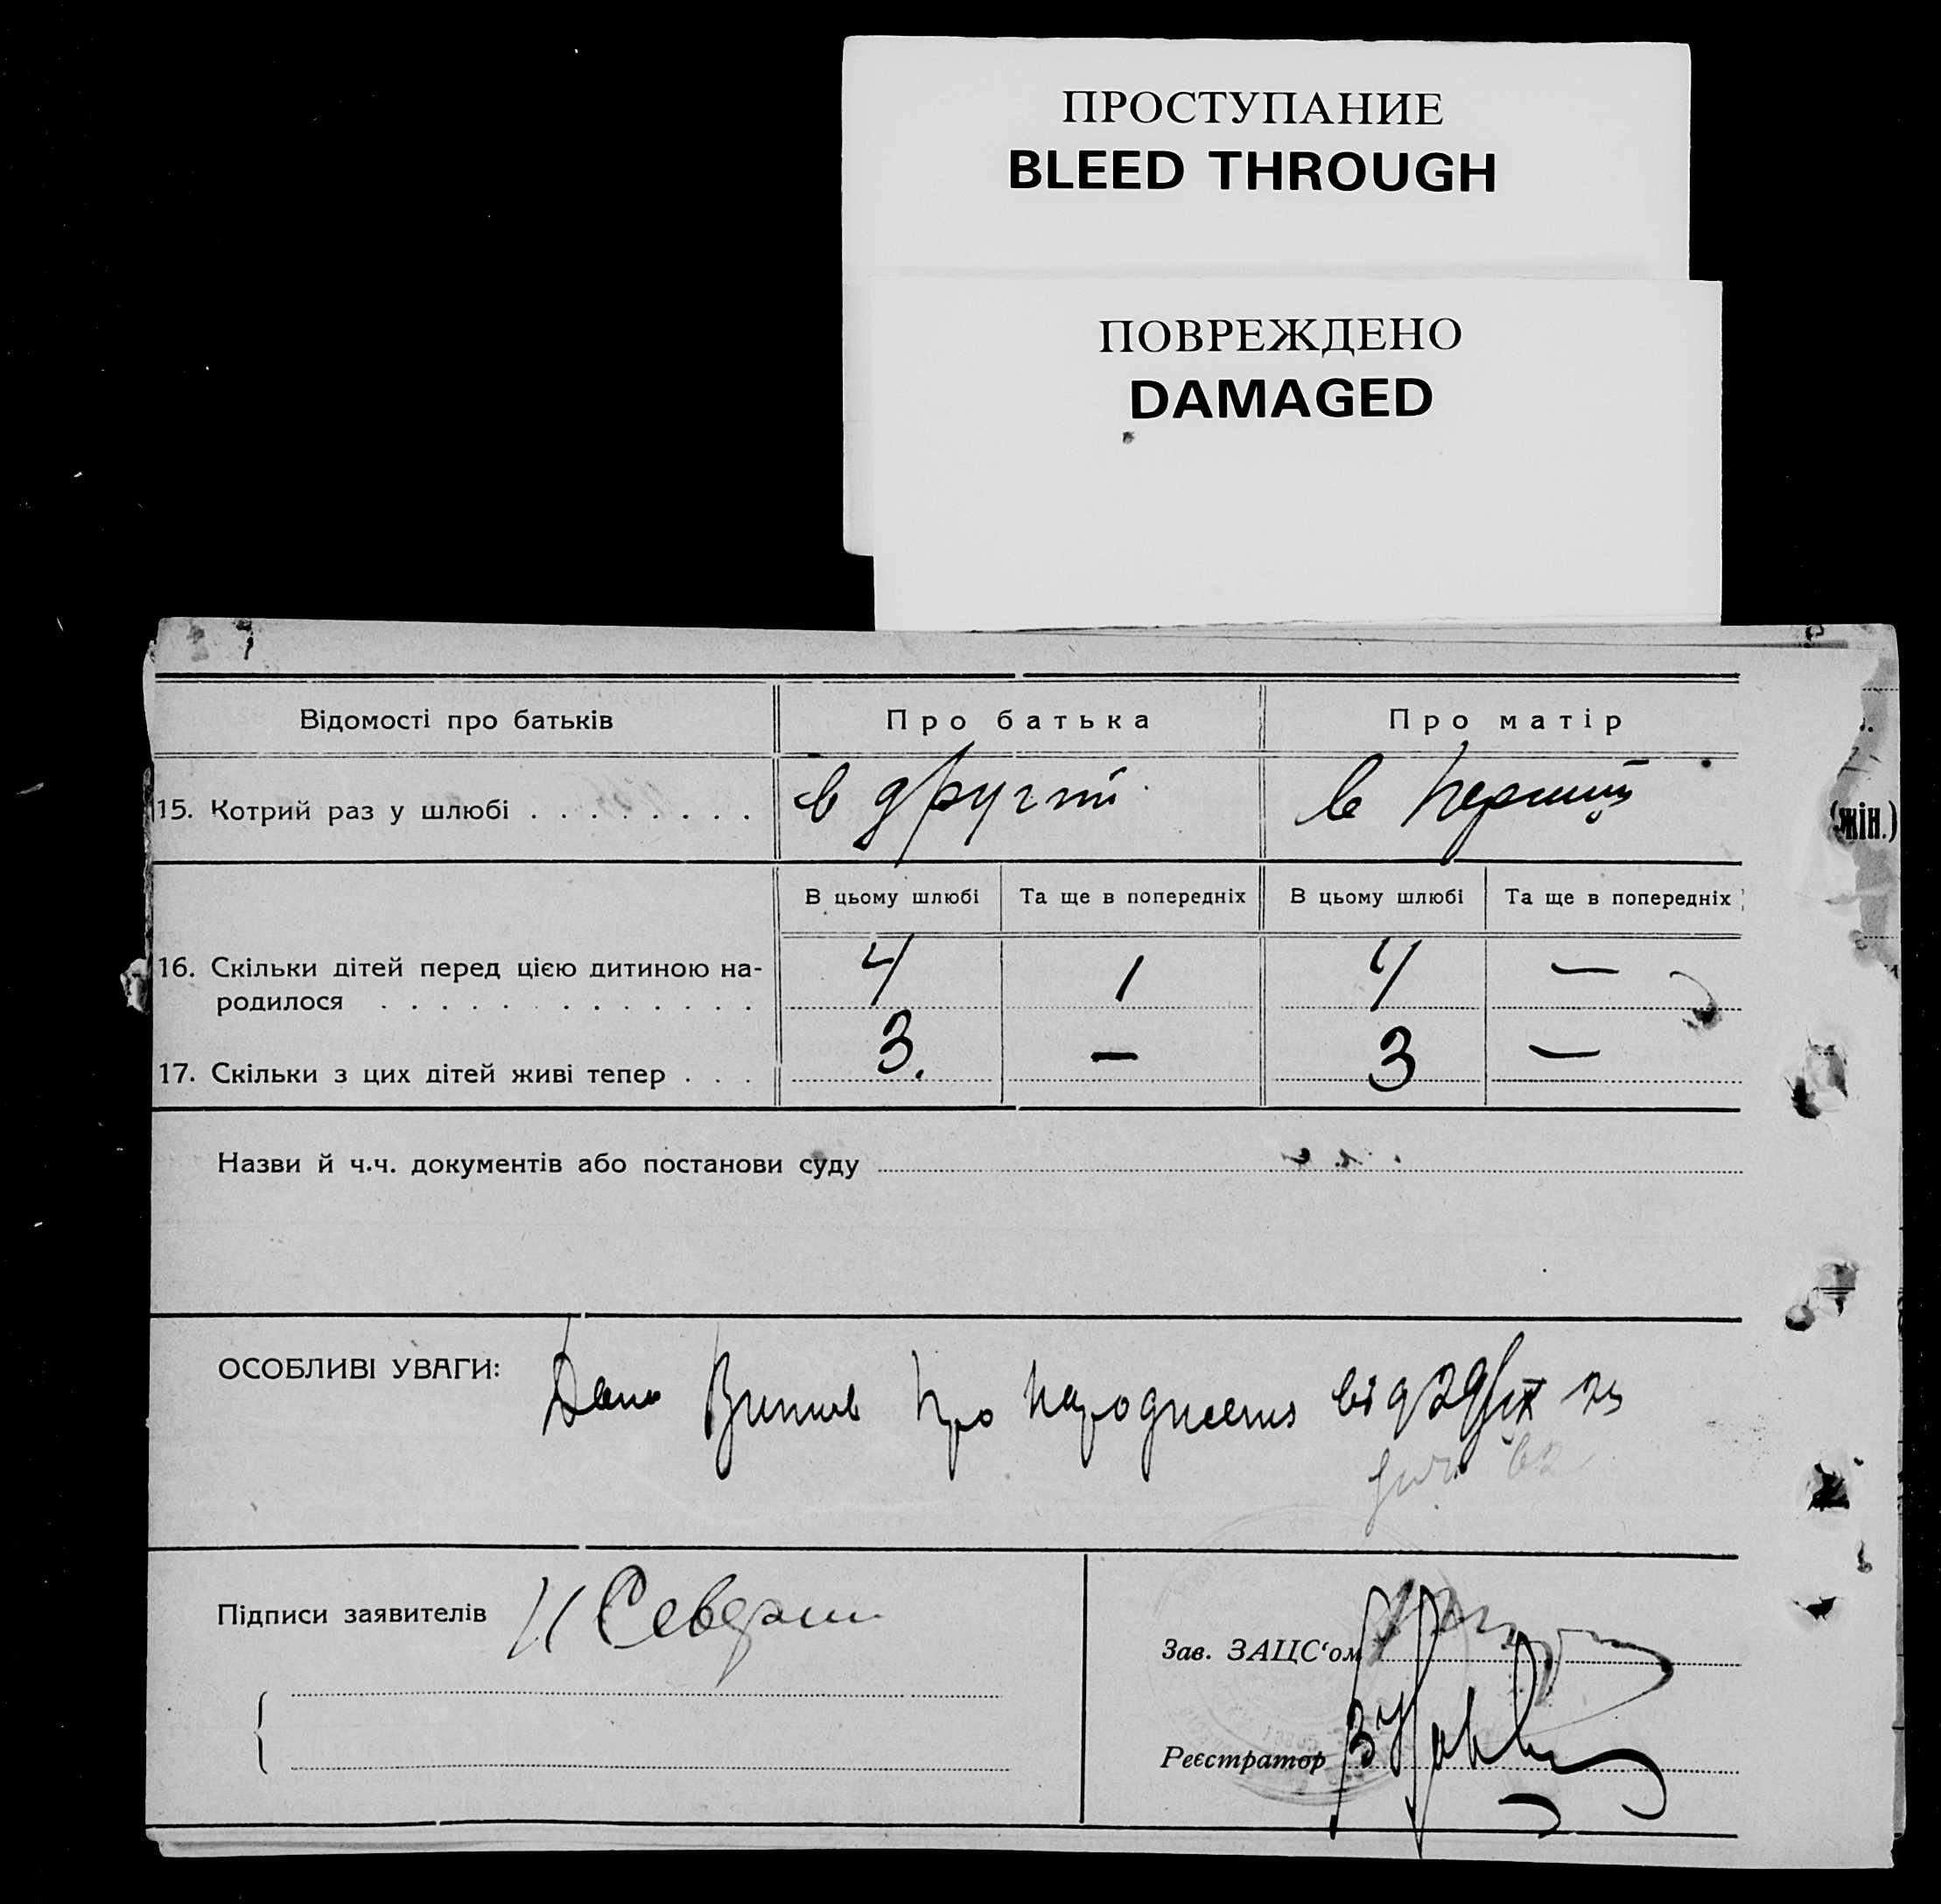 ПРОСТУПАНИЕ
BLEED THROUGH
ПОВРЕЖДЕНО
DAMAGED
Відомості про батьків Про батька Про матір
15. Котрий раз у шлюбі . . . . . . . . в другий в перший
(жін.)
В цьому шлюбі Та ще в попередніх В цьому шлюбі Та ще в попередніх
16. Скільки дітей перед цією дитиною на-
родилося . . . . . . . . . . . . . 4 1 4 —
17. Скільки з цих дітей живі тепер . . . 3. — 3 —
Назви й ч.ч. документів або постанови суду
ОСОБЛИВІ УВАГИ: Дано про народження від 29/IX
Підписи заявителів
Зав. ЗАЦС‘ом
Реєстратор